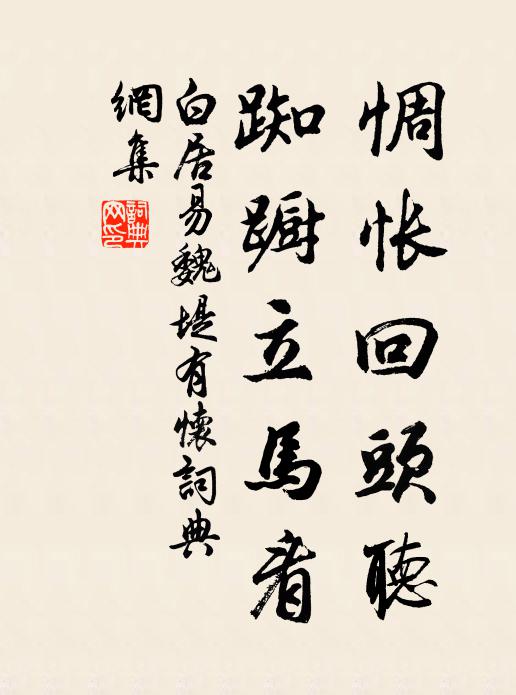 惆怅回頭聽
踟蹰立馬看
白居易魏堤有懷詞典
網集
詞典網印